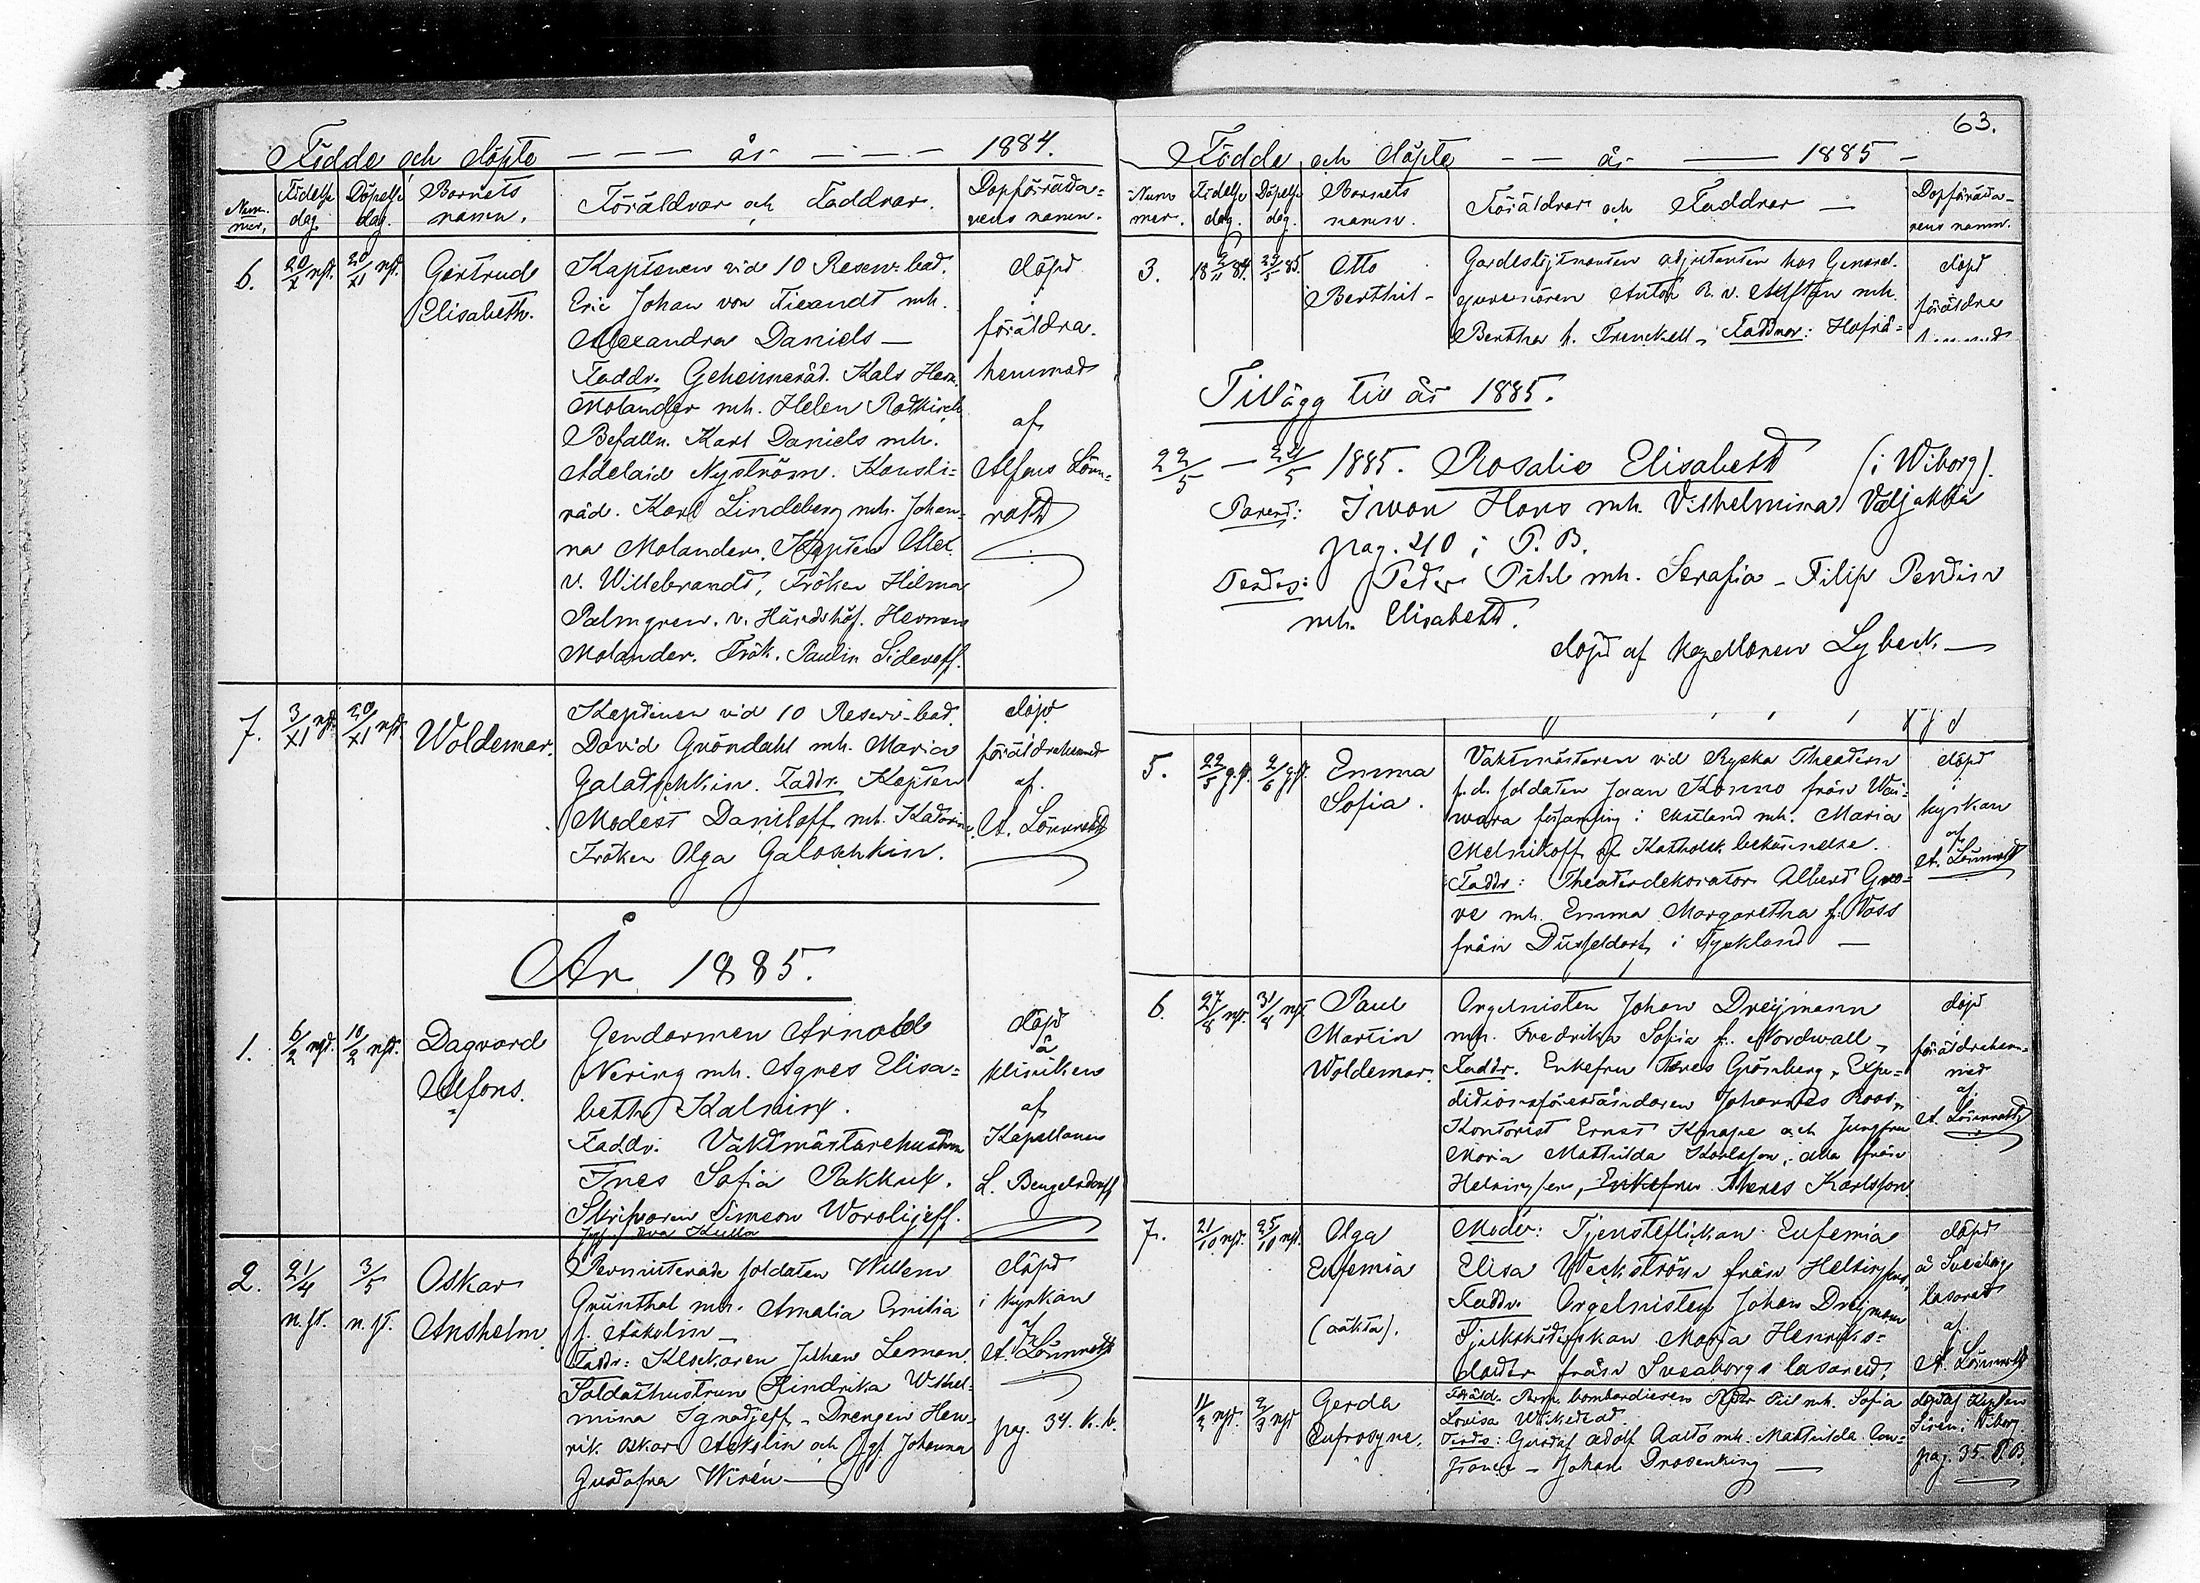 Födde och döpte — — — år — — — 1884.
Num-mer. Födelse dag. Döpelse dag. Barnets namn. Föräldrar och Faddrar. Dopförrätta=rens namn.
6. 20/X nst. 20/XI nst. Gertrud Elisabeth.
Kaptenen vid 10 Reserv-bat.
Eric Johan von Fieandt mh.
Alexandra Daniels —
Faddr. Geheimeråd. Herm.
Molander mh. Helen Rotkirch
Befalln. Karl Daniels mh.
Adelaid Nyström. Kansli=
råd. Karl Lindeberg mh. Johan=
na Molander. Kapten Alex.
v. Willebrandt, Fröken Hilma
Palmgren. v. Häradshöf. Herman
Molander. Frök. Paulin Sidereff.
döpd
i
föräldra.
hemmet
af
Alfons Lönn=
roth
7. 3/XI nst. 20/XI nst. Woldemar.
Kaptenen vid 10 Reserv-bat.
David Gröndahl mh. Maria
Galatschkin. Faddr. Kapten
Modest Daniloff mh. Katarina.
Fröken Olga Galoschkin.
döpd
i
föräldrahemmet
af.
A. Lönnroth
År 1885.
1. 6/2 nst. 10/2 nst. Dagvard Alfons.
Gendarmen Arnold
Nering mh. Agnes Elisa=
beth Kalning.
Faddr. Vaktmästarehustrun
Ines Sofia Pakkus.
Skrifvaren Simeon Worolijeff.
Jgf. Eva Kulla
döpd
å
kliniken
af
Kapellanen
L. Bengelsdorff
2. 21/4 n.st. 3/5 n.st. Oskar Anshelm
Permitterade soldaten Willem
Grünthal mh. Amalia Emilia
f. Askolin —
Faddr: Klockaren Johan Leman.
Soldathustrun Hindrika Wilhel=
mina Ignatjeff — Drengen Hen=
rik Oskar Askolin och Jgf. Johanna
Gustafva Wirén —
döpd
i kyrkan
af
A. Lönnroth
pag. 34. K.B.
63.
Födde och döpte — — år — 1885 —
Num mer. Födelse dag. Döpelse dag. Barnets namn. Föräldrar och Faddrar — Dopförrätta-rens namn.
3. 18 2/11 84. 24/5 85. Otto Berthil —
Gardeslöjtnanten adjutanten hos General-
guvernören Anton R. v. Alfthan mh.
Bertha f. Frenckell — Faddrar: Hofrå=
döpd
i
föräldra
Tillägg till år 1885.
22/5 — 24/5 1885. Rosalie Elisabeth (i Wiborg).
Parent: Iwan Hans mh. Vilhelmina Väljakka
pag. 210 i P.B.
Testes: Peter Pihl mh. Serafia — Filip Pentin
mh. Elisabeth.
döpt af Kapellanen Lybeck —
5. 22/5 g.st. 2/6 gst. Emma Sofia.
Vaktmästaren vid Ryska Theatern
f.d. soldaten Jaan Konno från Wai=
wara församling i Estland mh. Maria
Melnikoff af Katholsk bekännelse.
Faddr: Theaterdekorator Albert Gro=
ve mh. Emma Margaretha f. Voss
från Düsseldorf i Tyskland —
döpd
i
kyrkan
af
A. Lönnroth
6. 27/8 nst. 31/8 nst. Paul Martin Woldemar.
Orgelnisten Johan Dreijmann
mh. Fredrika Sofia f. Nordwall —
Faddr. Enkefru Theres Grönberg, Expe=
ditionsföreståndaren Johannes Roos,
Kontorist Ernst Knape och Jungfru
Maria Mathilda Karlsson, alla från
Helsingfors, Enkefru Theres Karlsson.
döpd
i
föräldrahem=
met
af
A. Lönnroth
7. 21/10 nst. 25/10 nst. Olga Eufemia (oäkta).
Moder: Tjensteflickan Eufemia
Elisa Weckström från Helsingfors
Faddr. Orgelnisten Johan Dreijmann
Sjuksköterskan Maria Henriks=
dotter från Sveaborgs lasarett.
döpd
å Sveaborgs
lasarett
af
A. Lönnroth
11/2 nst. 2/3 nst Gerda Eufrosyne.
Föräld. bombardieren Peter Pil mh. Sofia
Lovisa Wikstedt.
Testes: Gustaf Adolf Aalto mh. Mathilda Con=
stance — Johan Drosenking —
döpt af Kaplan
Siren i Viborg
pag. 35. P.B.